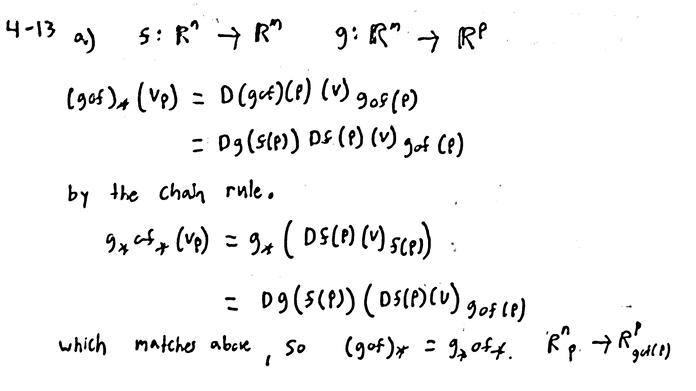 4-13 a) f: ℝⁿ → ℝᵐ g: ℝᵐ → ℝᵖ
(g∘f)_* (v_p) = D(g∘f)(p) (v)_{g∘f(p)}
= Dg(f(p)) Df(p)(v)_{g∘f(p)}
by the chain rule.
g_*∘f_*(v_p) = g_*(Df(p)(v)_{f(p)})
= Dg(f(p))(Df(p)(v)_{g∘f(p)}
which matches above, so (g∘f)_* = g_*∘f_*. ℝⁿ_p → ℝᵖ_{g∘f(p)}